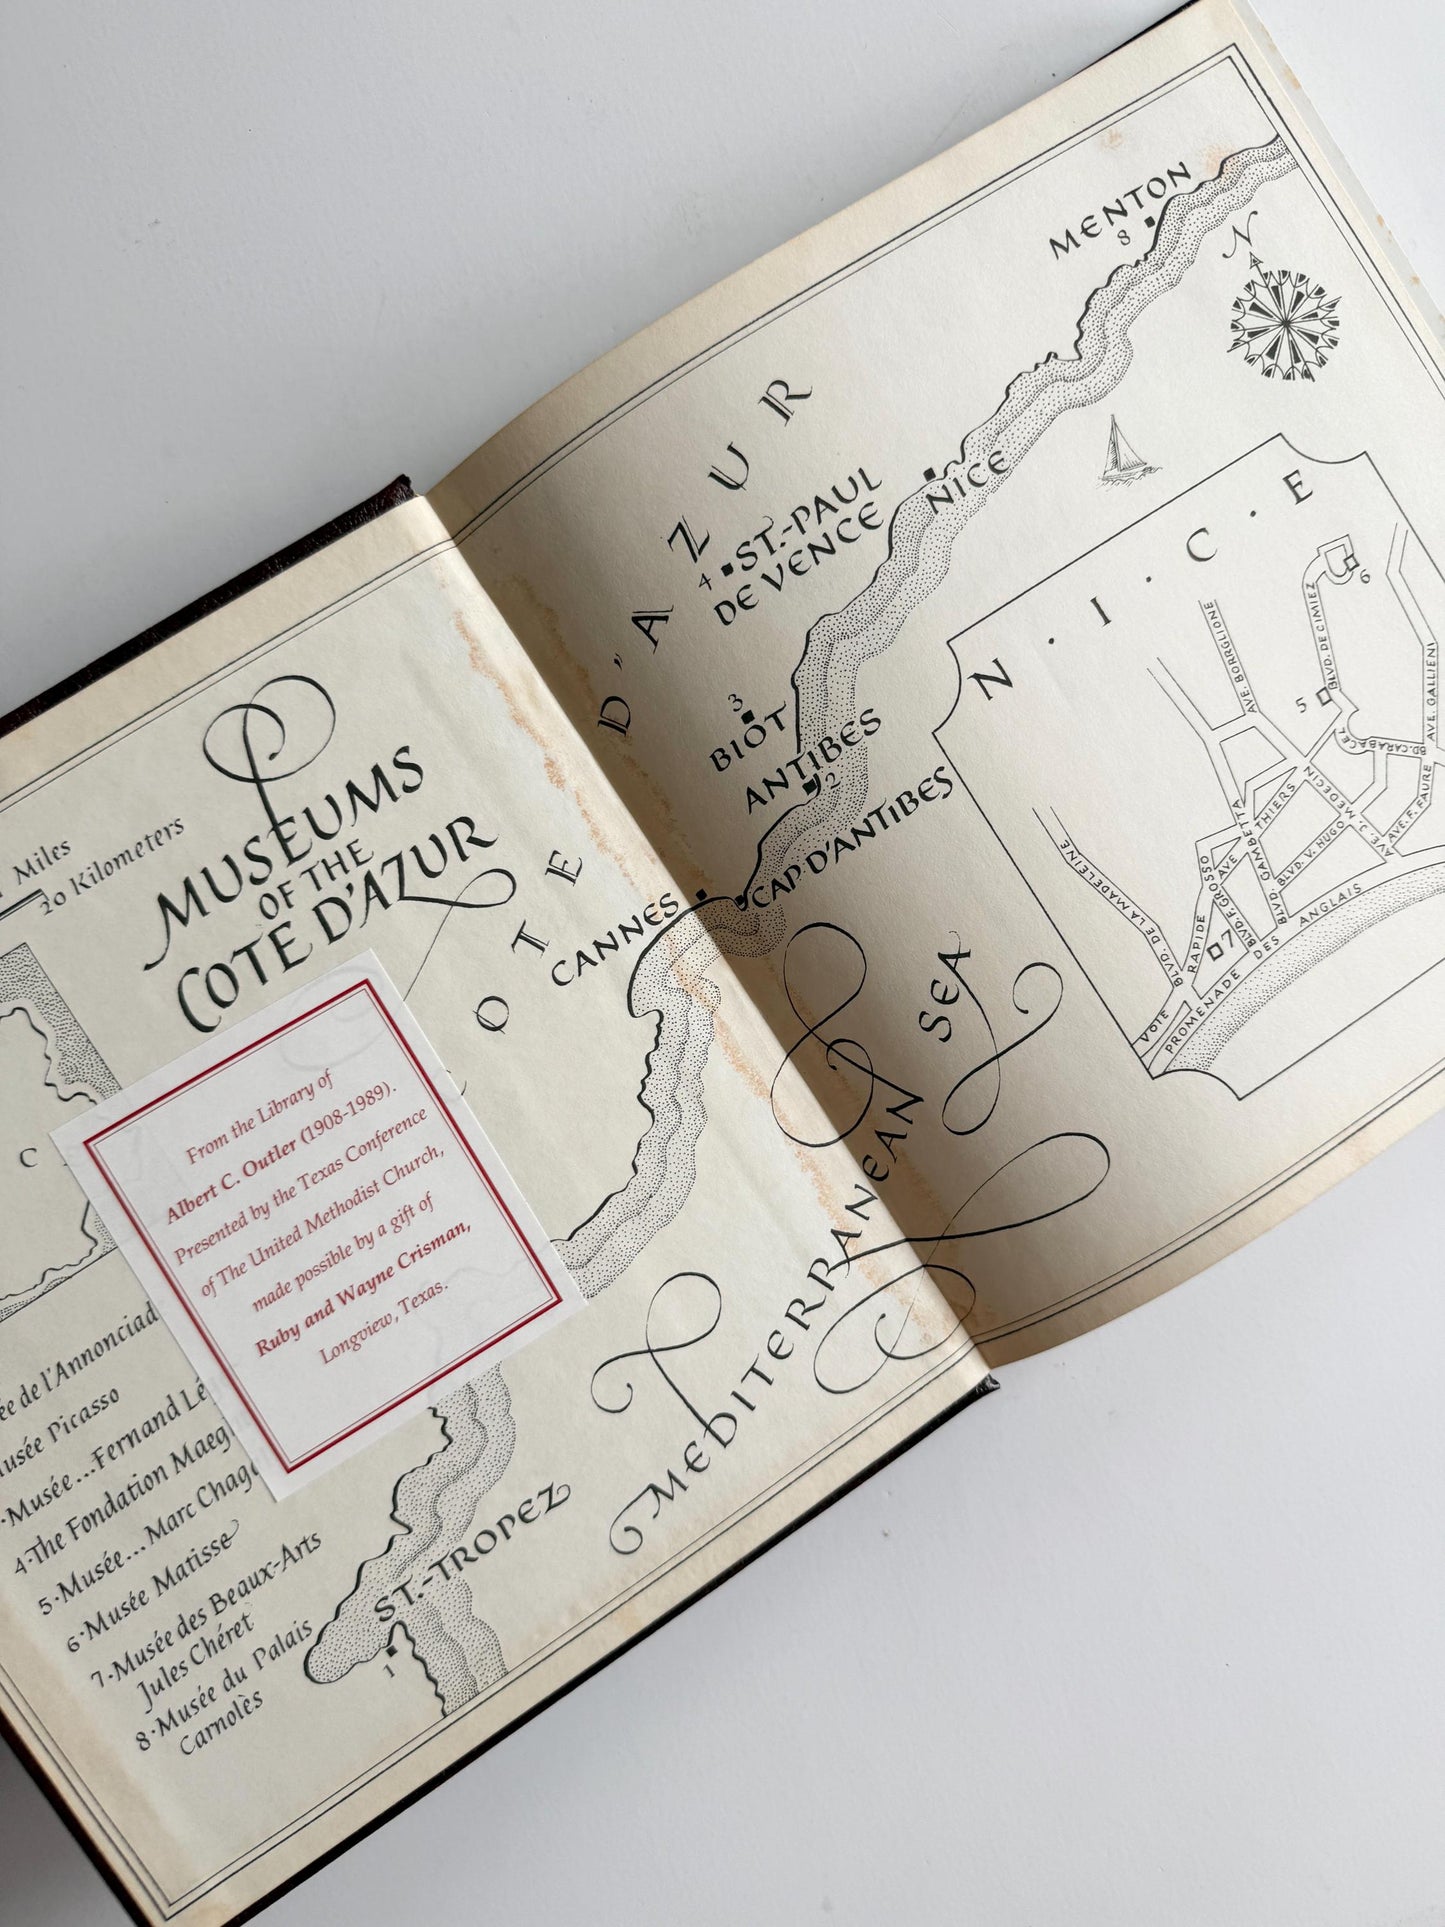 Miles
20 Kilometers
MUSEUMS
OF THE
COTE D'AZUR
From the Library of
Albert C. Outler (1908-1989).
Presented by the Texas Conference
of The United Methodist Church,
made possible by a gift of
Ruby and Wayne Crisman,
Longview, Texas.
de l'Annonciad
Picasso
Musée...Fernand Lé
4·The Fondation Maeg
5·Musée...Marc Chag
6·Musée Matisse
7·Musée des Beaux-Arts
Jules Chéret
8·Musée du Palais
Carnolès
C
OTE D'AZUR
MENTON
8
N
NICE
4
ST.-PAUL
DE VENCE
3
BIOT
ANTIBES
2
CAP D'ANTIBES
CANNES
ST.-TROPEZ
1
MEDITERRANEAN
SEA
N·I·C·E
6
5
BLVD. DE CIMIEZ
AVE. BORRGLIONE
AVE. GALLIENI
BD. CARABACEL
AVE. J. MEDECIN
AVE. F. FAURE
AVE THIERS
BLVD. GAMBETTA
BLVD. V. HUGO
BLVD. F. GROSSO
BLVD. DE LA MADELEINE
VOIE RAPIDE
7
PROMENADE DES ANGLAIS